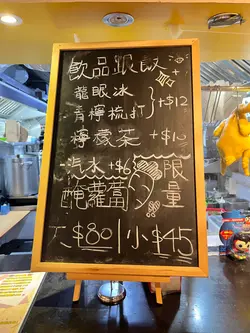 飲品跟飯
龍眼冰
青檸梳打 } +$12
檸檬茶 +$10
汽水 +$6
醃蘿蔔 限量
大 $80 | 小 $45